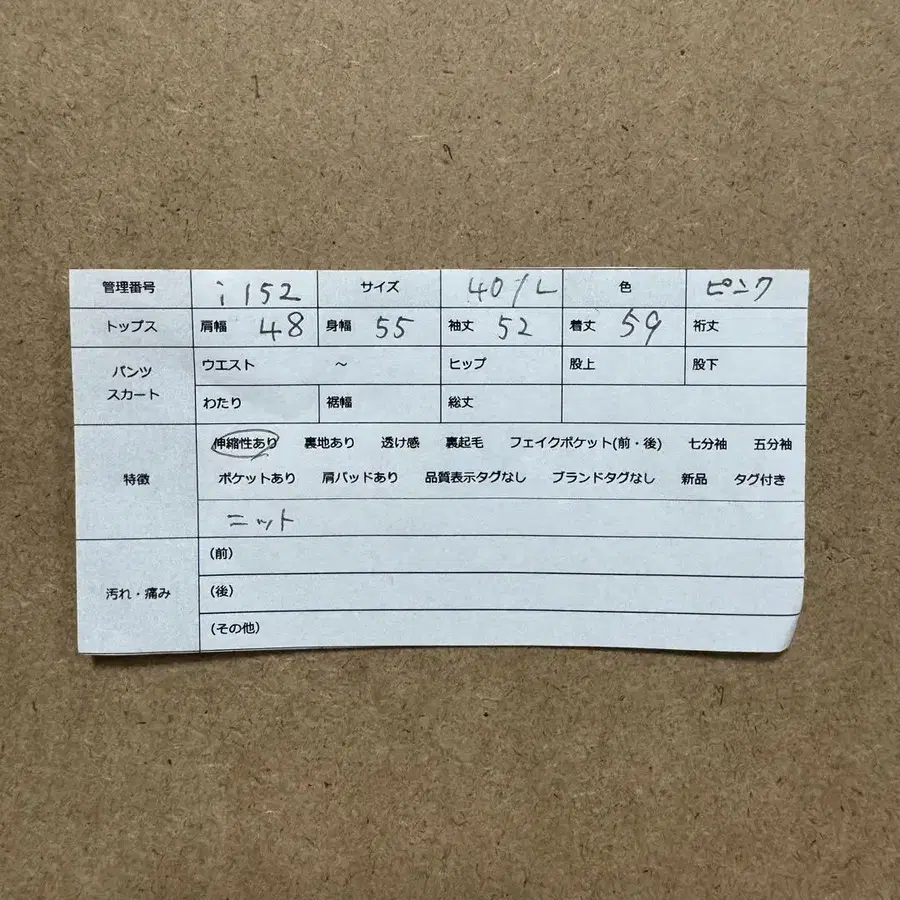 管理番号 i152 サイズ 40/L 色 ピンク
トップス 肩幅 48 身幅 55 袖丈 52 着丈 59 裄丈
パンツ スカート ウエスト ～ ヒップ 股上 股下
わたり 裾幅 総丈
特徴 伸縮性あり 裏地あり 透け感 裏起毛 フェイクポケット(前・後) 七分袖 五分袖
ポケットあり 肩パッドあり 品質表示タグなし ブランドタグなし 新品 タグ付き
ニット
汚れ・痛み (前)
(後)
(その他)